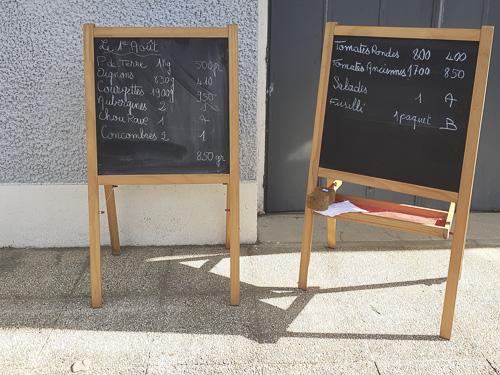 Le 1er Août
P. de Terre 1Kg 500gr
Oignons 830 410
Courgettes 1900g 950
Aubergines 2 1
Chou Rave 1
Concombres 2 1
850 gr
Tomates Rondes 800 400
Tomates Anciennes 1700 850
Salades 1 A
Fusilli 1 paquet B